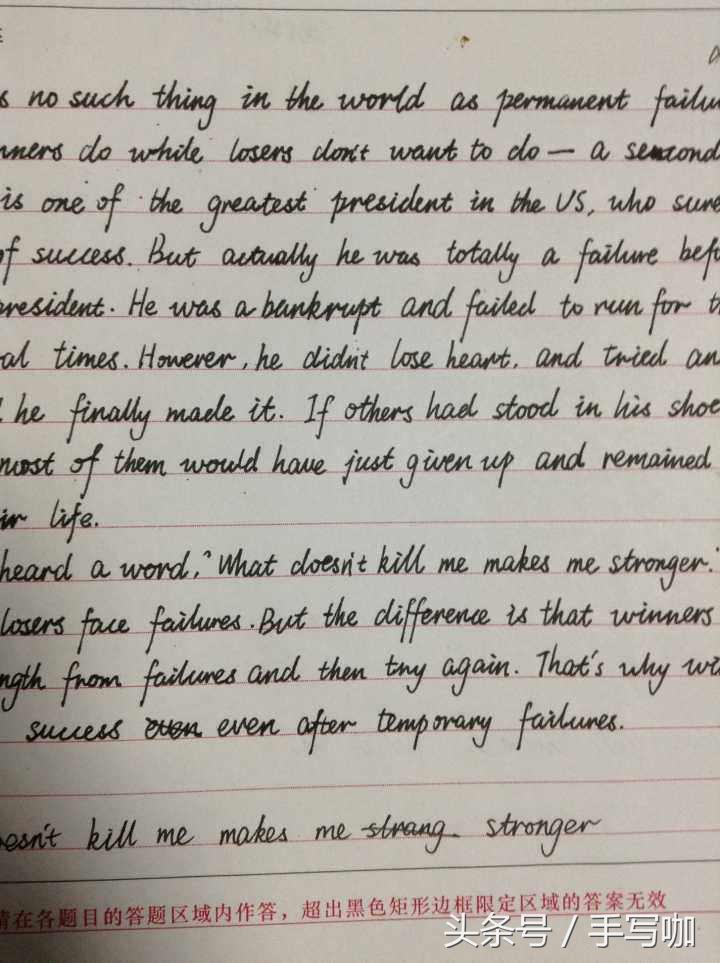 s no such thing in the world as permanent failu
nners do while losers don't want to do — a second
is one of the greatest president in the US, who sure
of success. But actually he was totally a failure befo
president. He was a bankrupt and failed to run for th
al times. However, he didn't lose heart, and tried an
he finally made it. If others had stood in his shoe
most of them would have just given up and remained
ir life.
heard a word, "What doesn't kill me makes me stronger."
losers face failures. But the difference is that winners
ngth from failures and then try again. That's why wi
success even even after temporary failures.
oesn't kill me makes me strang stronger
请在各题目的答题区域内作答，超出黑色矩形边框限定区域的答案无效
头条号 / 手写咖